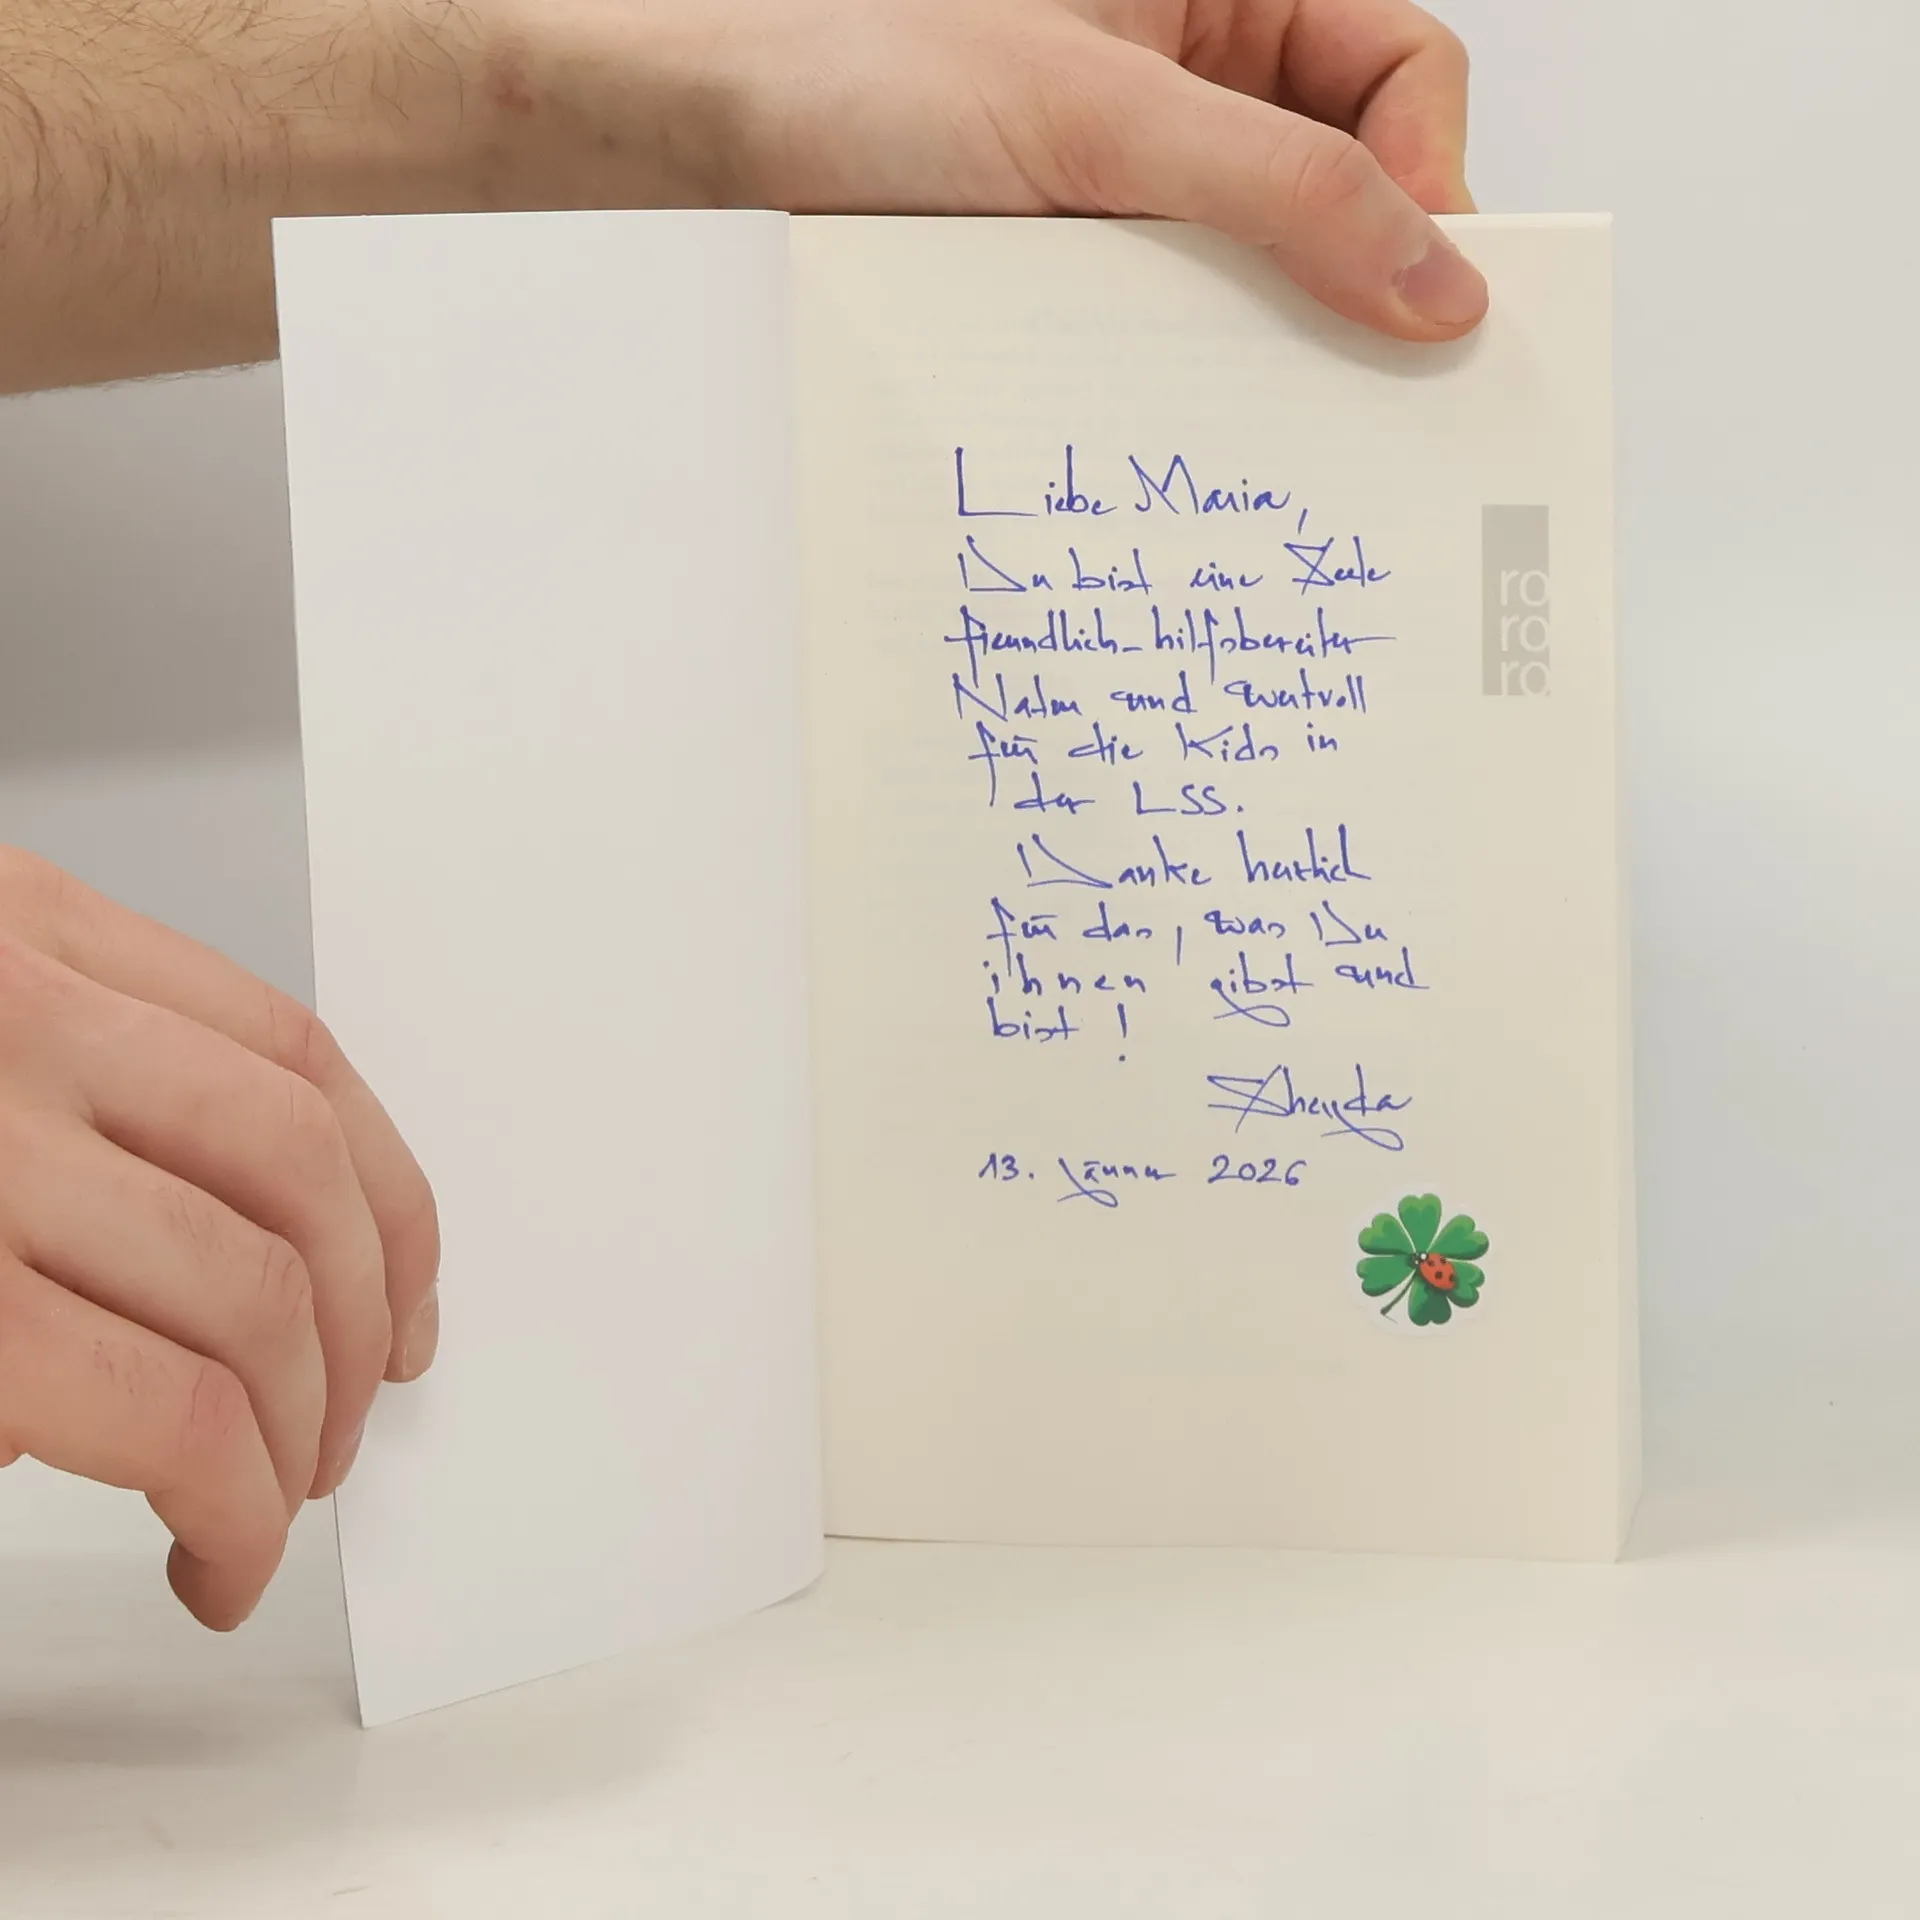 Liebe Maria,
Du bist eine Seele
freundlich-hilfsbereiter
Natur und wertvoll
für die Kids in
der LSS.
Danke herzlich
für das, was Du
ihnen gibst und
bist!
13. Jänner 2026
ro
ro
ro